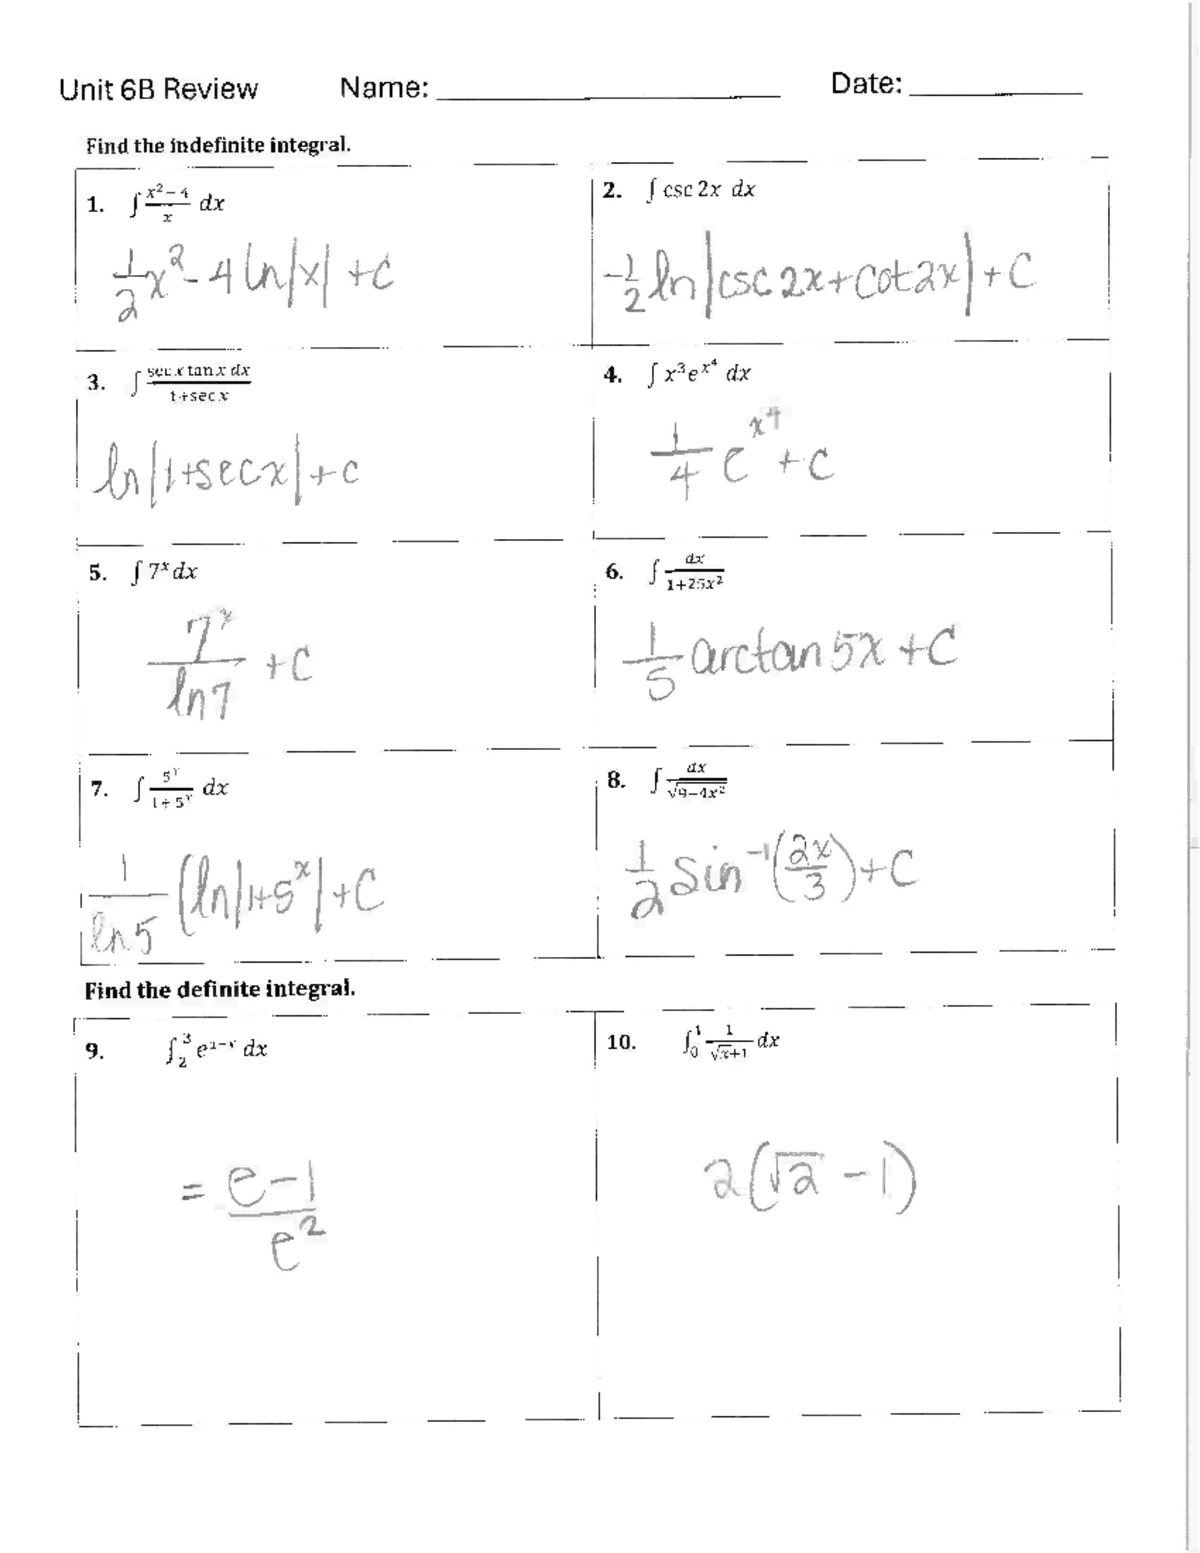 Unit 6B Review Name: ____ Date: ____
Find the indefinite integral.
1. ∫ (x² − 4)/x dx
½x² - 4 ln|x| + C
2. ∫ csc 2x dx
-½ ln|csc 2x + cot 2x| + C
3. ∫ (sec x tan x dx)/(1+sec x)
ln|1+sec x| + C
4. ∫ x³e^(x⁴) dx
1/4 e^(x⁴) + C
5. ∫ 7ˣ dx
7ˣ/ln 7 + C
6. ∫ dx/(1+25x²)
1/5 arctan 5x + C
7. ∫ 5ˣ/(1+5ˣ) dx
1/ln 5 (ln|1+5ˣ| + C
8. ∫ dx/√(9−4x²)
½ sin⁻¹(2x/3) + C
Find the definite integral.
9. ∫₂³ dx
= (e-1)/e²
10. ∫₀¹ 1/√(x+1) dx
2(√2 - 1)